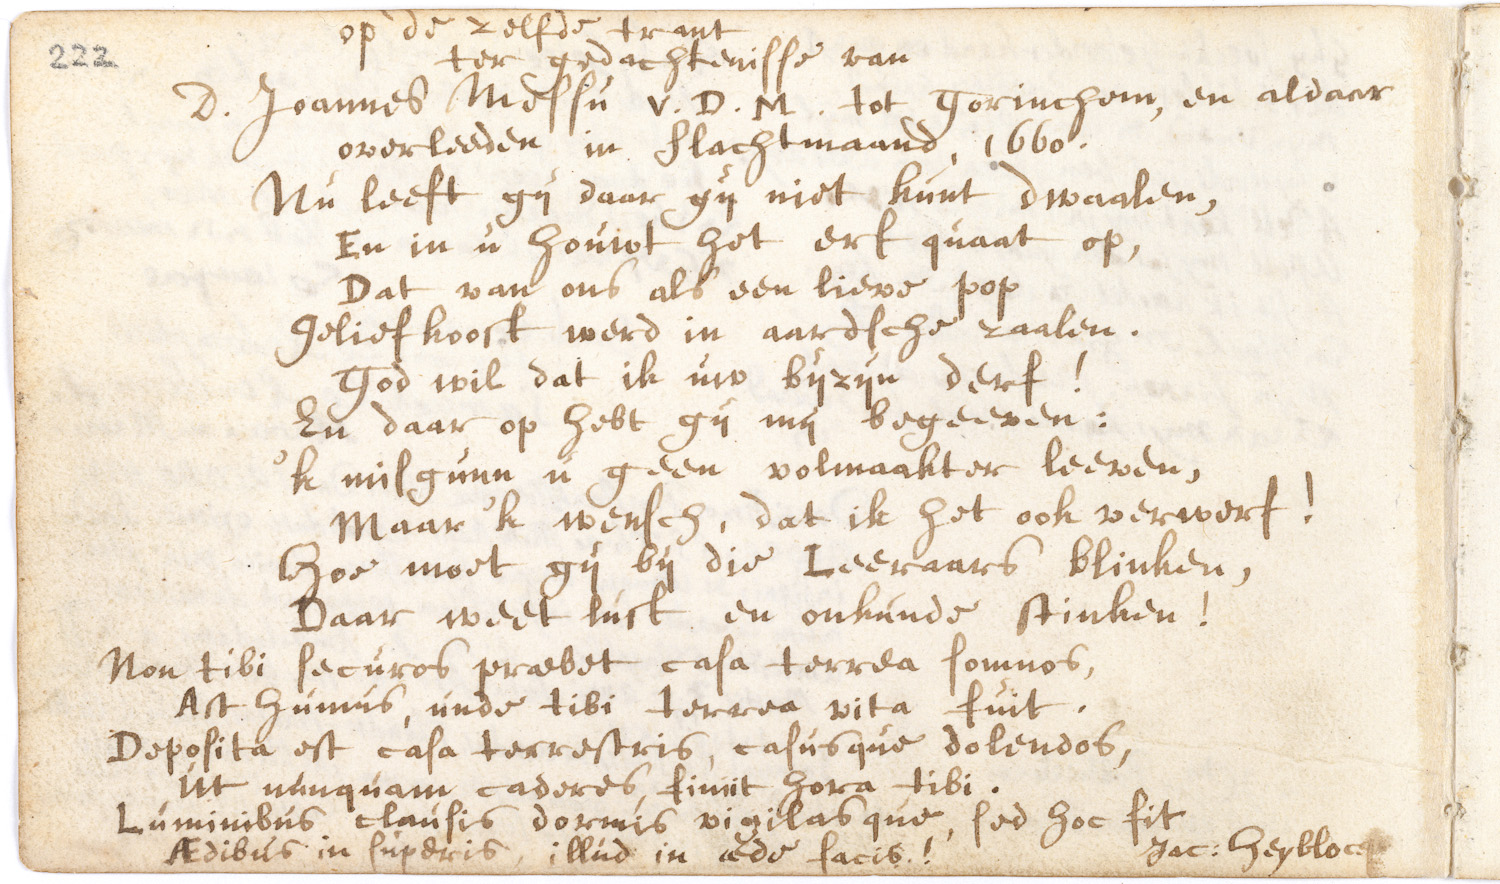 222
op de zelfde trant
ter gedachtenisse van
D. Joannes Messu V. D. M. tot Gorinchem, en aldaar
overleeden in slachtmaand, 1660.
Nu leeft gÿ daar gÿ niet kunt dwaalen,
En in u houwt het erf quaat op,
Dat van ons als een lieve pop
Geliefkoost werd in aardsche zaalen.
God wil dat ik uw bÿzÿn derf!
En daar op hebt gÿ mÿ begeeven:
'k misgunn u geen volmaakter leeven,
Maar 'k wensch, dat ik het ook verwerf!
Hoe moet gÿ bÿ die Leeraars blinken,
Daar weet lust en onkunde stinken!
Non tibi securos præbet casa terrea somnos,
Ast humus, unde tibi terrea vita fuit.
Deposita est casa terrestris, casusque dolendos,
Ut nunquam caderes, finiit hora tibi.
Luminibus clausis dormis vigilasque, sed hoc fit
Ædibus in superis, illud in æde facis!
Jac: Heyblocq